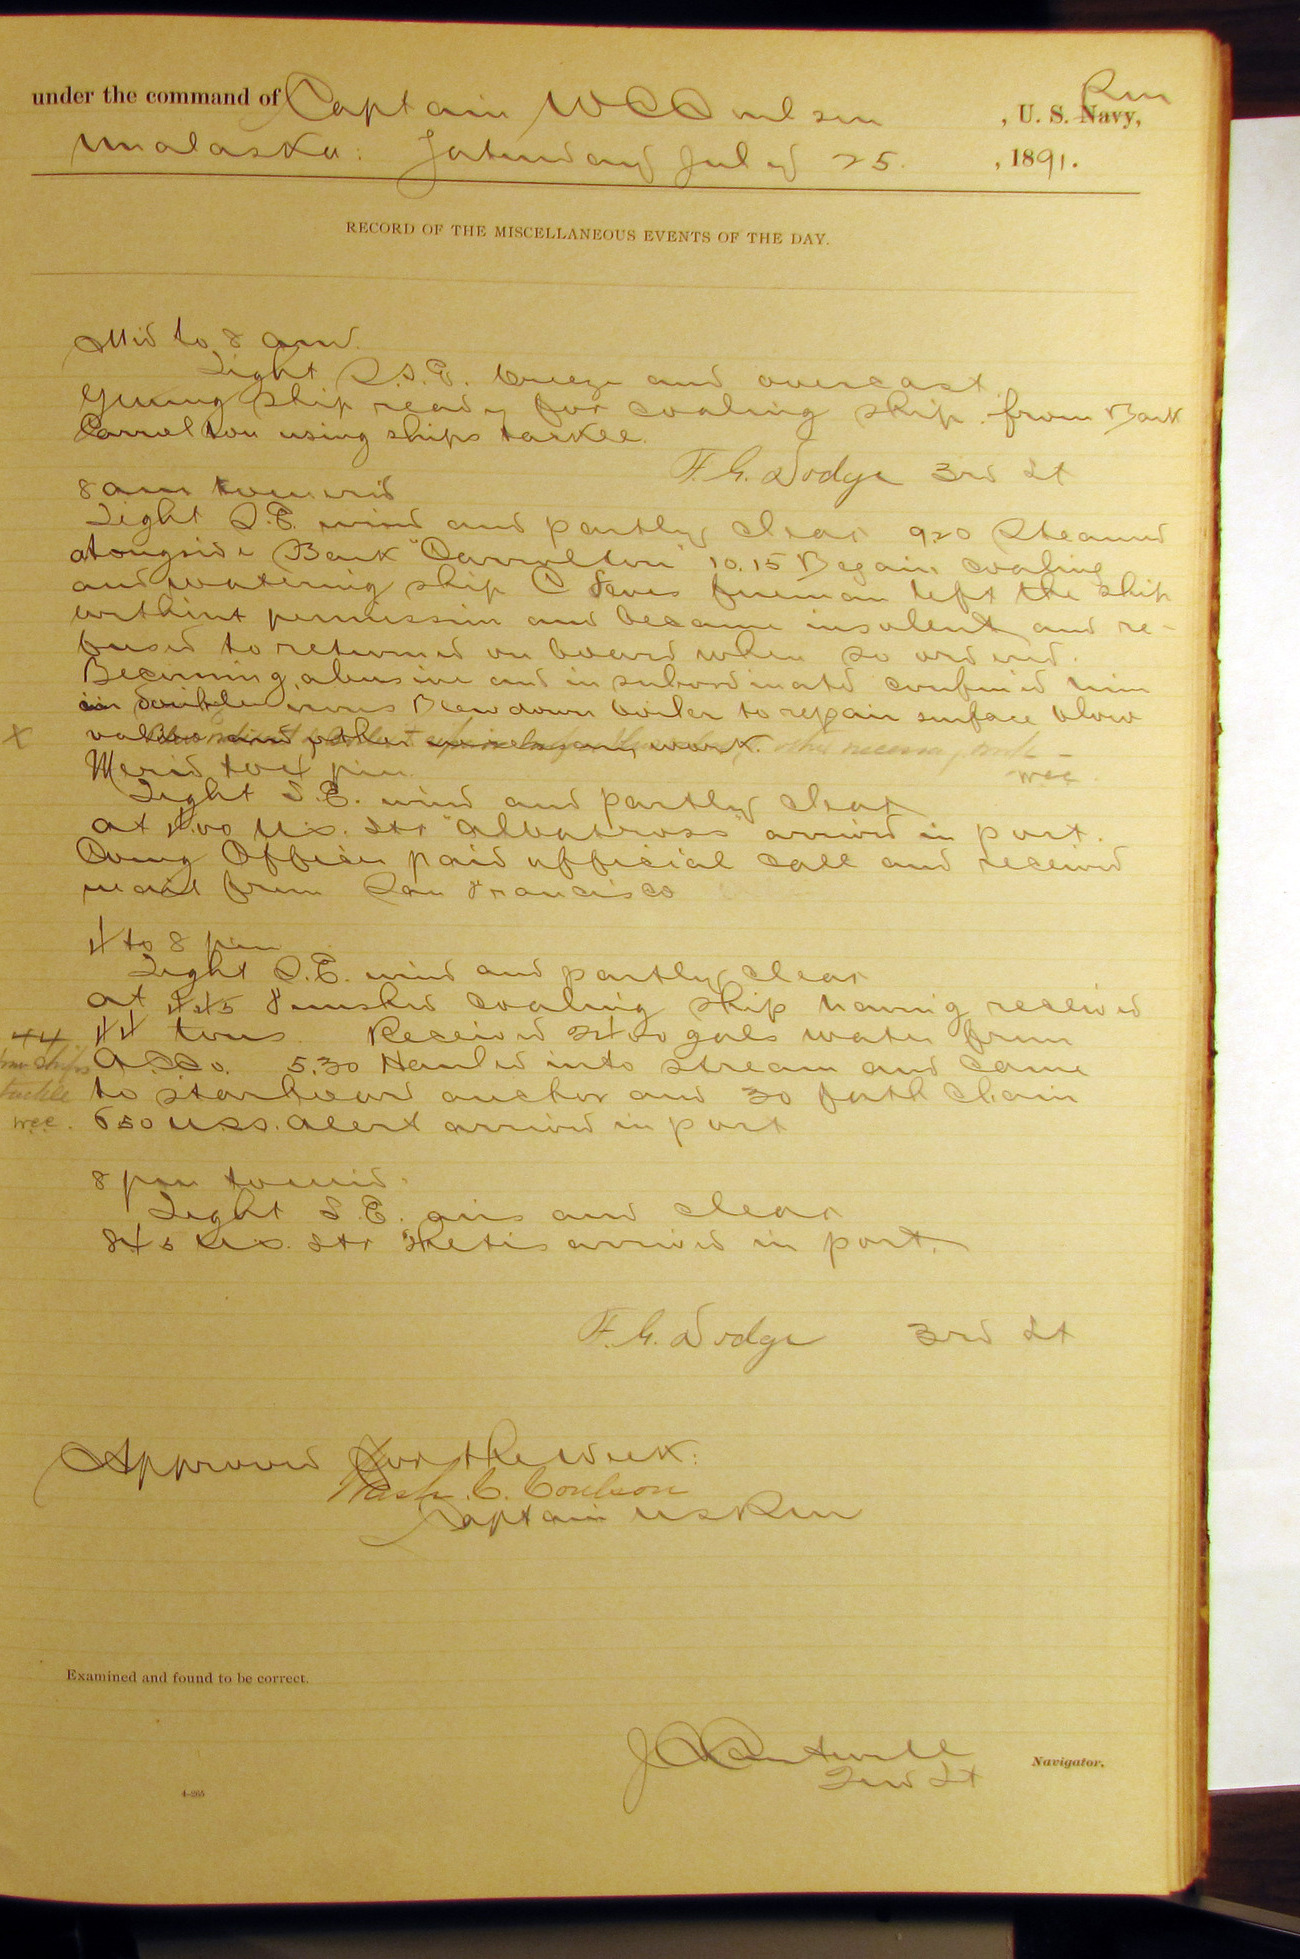 under the command of Captain W C Coulson , U. S. Navy, Rm
Unalaska: Saturday July 25. , 1891.
RECORD OF THE MISCELLANEOUS EVENTS OF THE DAY.
Mid to 8 am.
Light S.S.E. breeze and overcast.
Getting ship ready for coaling ship from Bark
Carrolton using ships tackle.
F. G. Dodge 3rd Lt
8 am to merid
Light S.E. wind and partly clear 920 Steamed
alongside Bark "Carrolton" 10.15 Began coaling
and watering ship C fireman left the ship
without permission and became insolent and re-
fused to returned on board when so ordered.
Becoming abusive and insubordinate confined him
in double irons Blew down boiler to repair surface blow
valves and other work. other necessary work -
wcc.
X
Merid to 4 pm.
Light S.E. wind and partly clear
at 4.00 U.S. Str "Albatross" arrived in port.
Comg Officer paid official call and received
mail from San Francisco
4 to 8 pm
Light S.E. wind and partly clear
at 445 Finished coaling ship having received
44 tons Received 3400 gals water from
A.C.Co. 5.30 Hauled into stream and came
to starboard anchor and 30 fath chain
650 U.S.S. Alert arrived in port
44
ships
tackle
wcc.
8 pm to mid.
Light S.E. airs and clear
845 U.S. Str Thetis arrived in port.
F. G. Dodge 3rd Lt
Approved for the Week:
Wash. C. Coulson
Captain USRM
Examined and found to be correct.
J C Cantwell Navigator.
2nd Lt
4-265